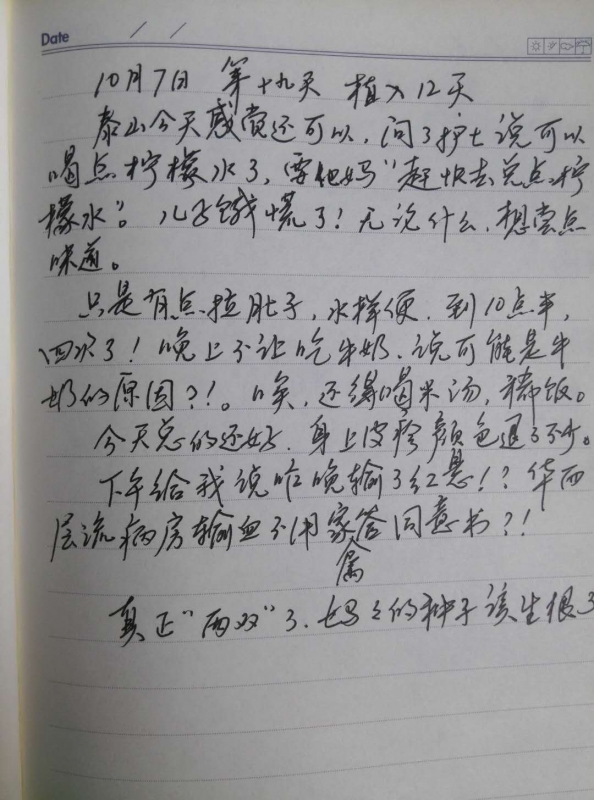 Date / /
10月7日 第十九天 植入12天
泰山今天感觉还可以,问了护士说可以
喝点柠檬水了,要他妈"赶快去兑点柠
檬水"。儿子饿慌了!无说什么,想尝点
味道。
只是有点拉肚子,水样便.到10点半,
四次了!晚上不让吃牛奶.说可能是牛
奶的原因?!。唉,还得喝米汤,稀饭。
今天总的还好.身上皮疹颜色退了不少。
下午给我说昨晚输了红悬!?华西
层流病房输血不用家签同意书?!
属
真正"两双"了.妈妈的种子该生根了